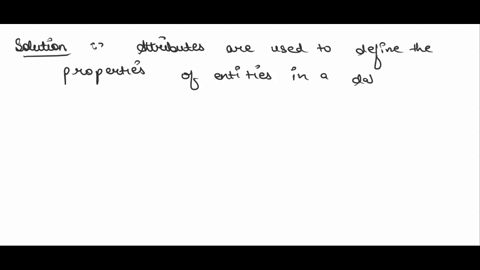 Solution :> Attributes are used to define the
properties of entities in a da